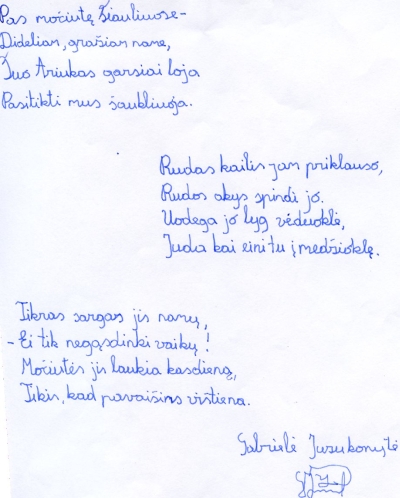 Pas močiutę Šiauliuose-
Dideliam, gražiam name,
Šuo Ariukas garsiai loja
Pasitikti mus šaukliuoja.
Rudas kailis jam priklauso,
Rudos akys spindi jo.
Uodega jo lyg vėduoklė,
Juda kai eini tu į medžioklę.
Tikras sargas jis namų,
- Ei tik negąsdinki vaikų!
Močiutės jis laukia kasdieną,
Tikis, kad pavaišins vištiena.
Gabrielė Jusukonytė